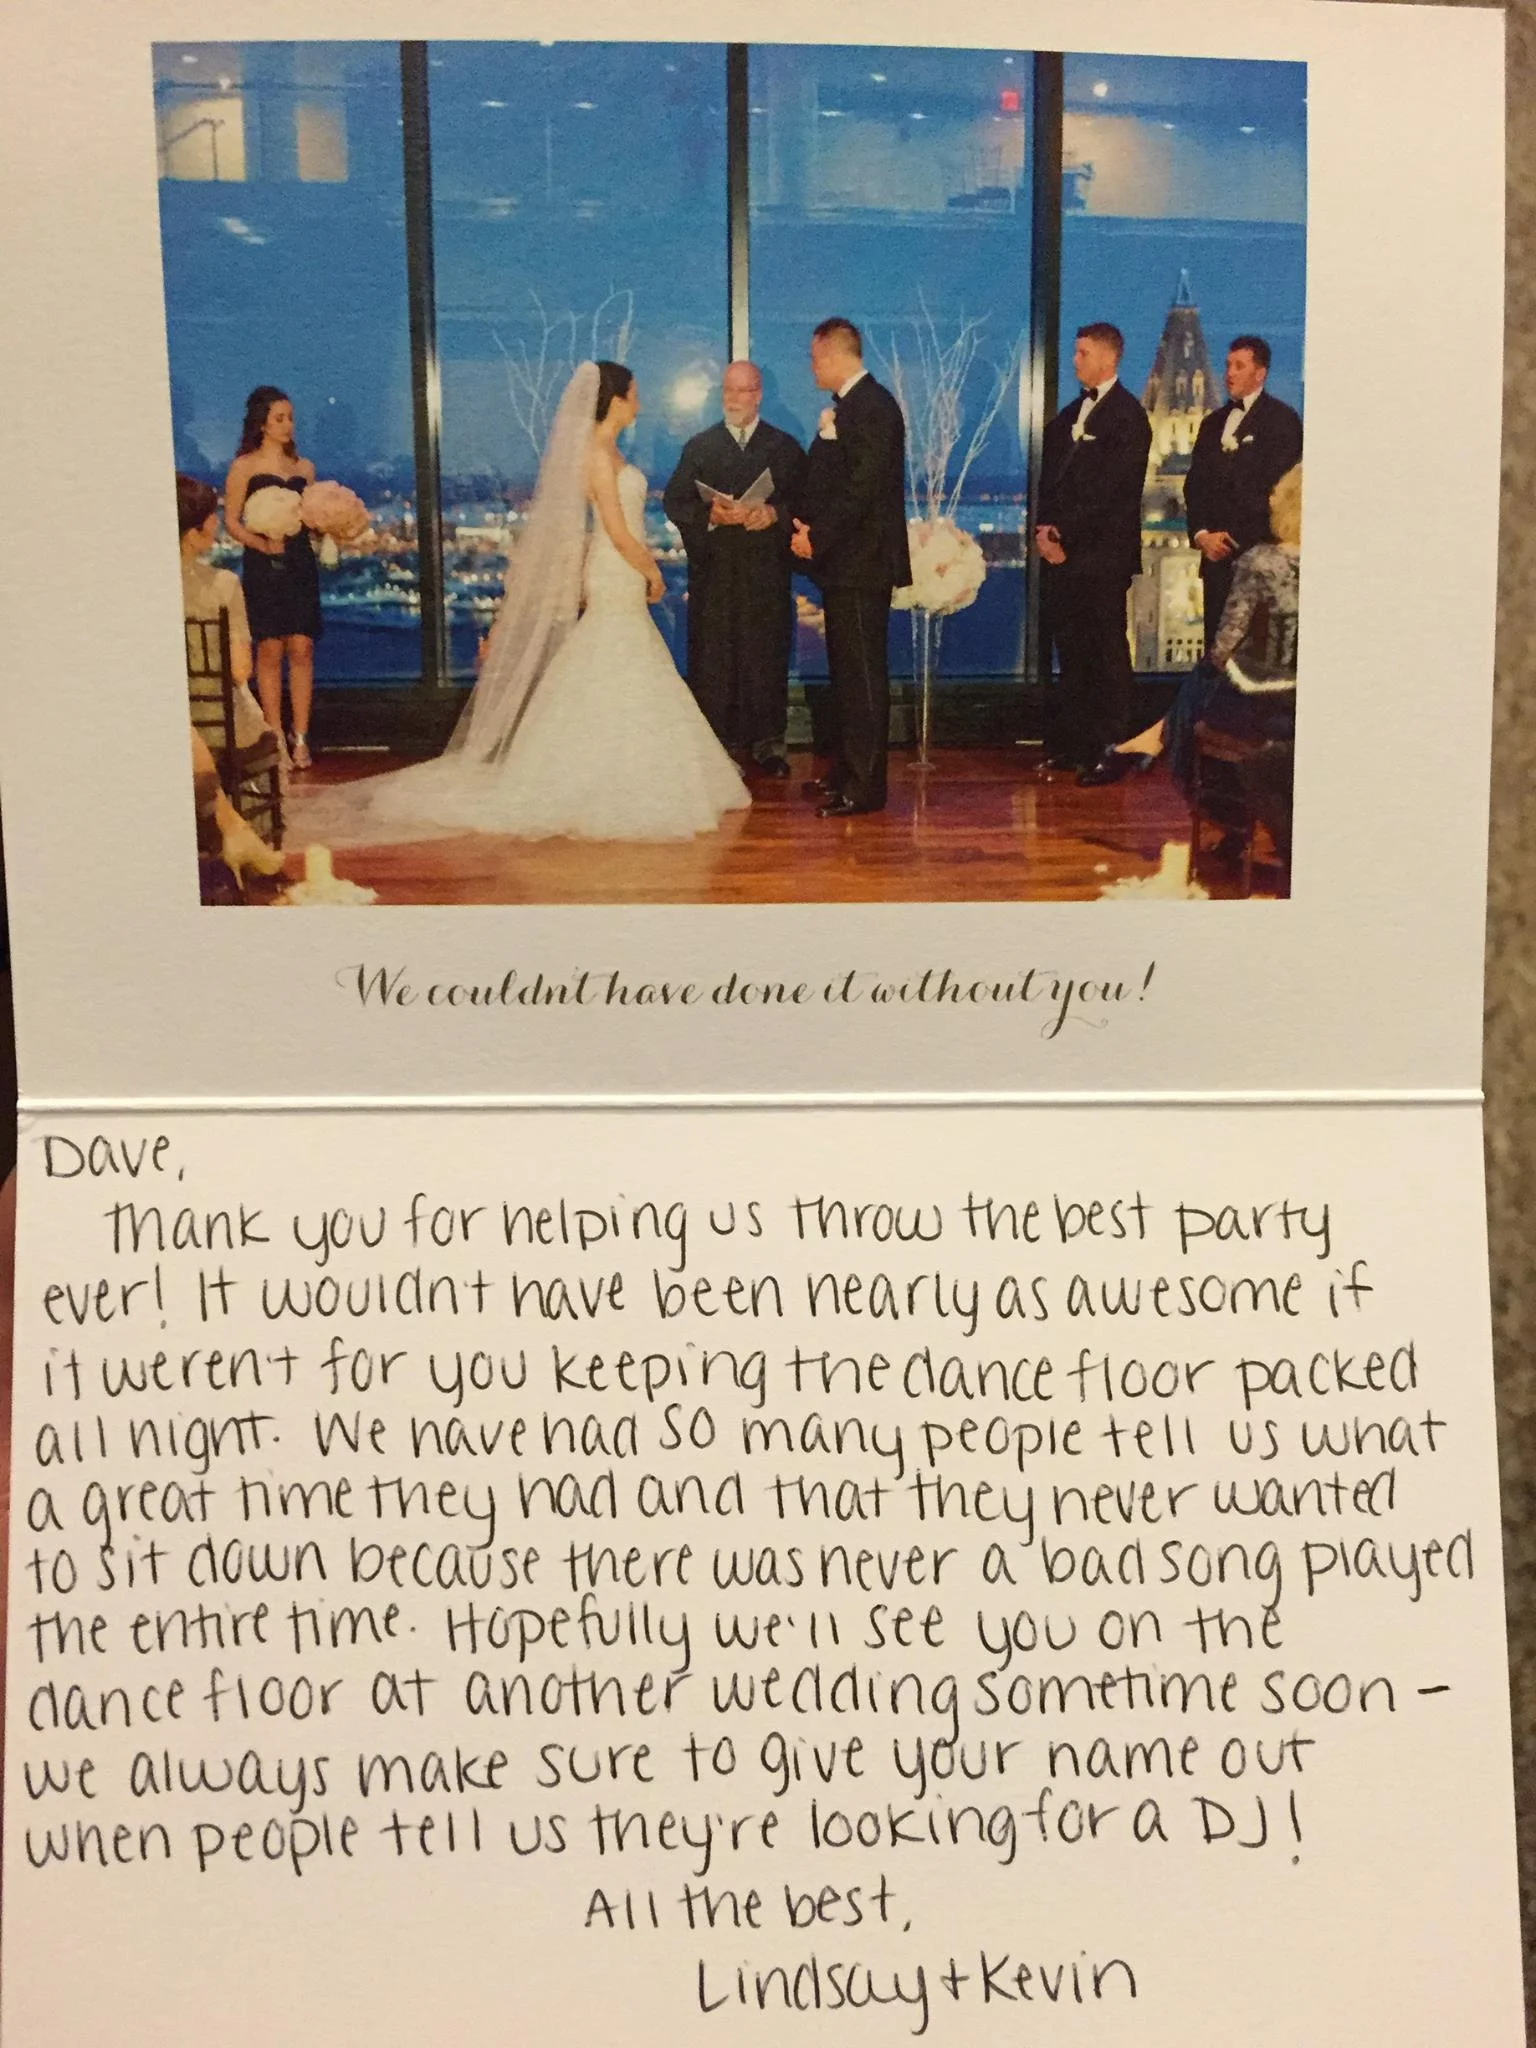 We couldn't have done it without you!
Dave,
Thank you for helping us throw the best party
ever! It wouldn't have been nearly as awesome if
it weren't for you keeping the dance floor packed
all night. We have had so many people tell us what
a great time they had and that they never wanted
to sit down because there was never a bad song played
the entire time. Hopefully we'll see you on the
dance floor at another wedding sometime soon -
we always make sure to give your name out
when people tell us they're looking for a DJ!
All the best,
Lindsay + Kevin